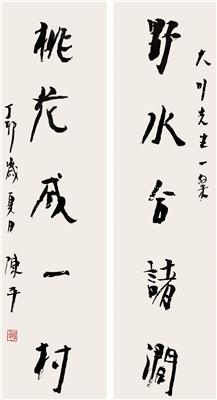 大川先生一粲
野水合諸澗
桃花成一村
丁卯歲夏日 陳平